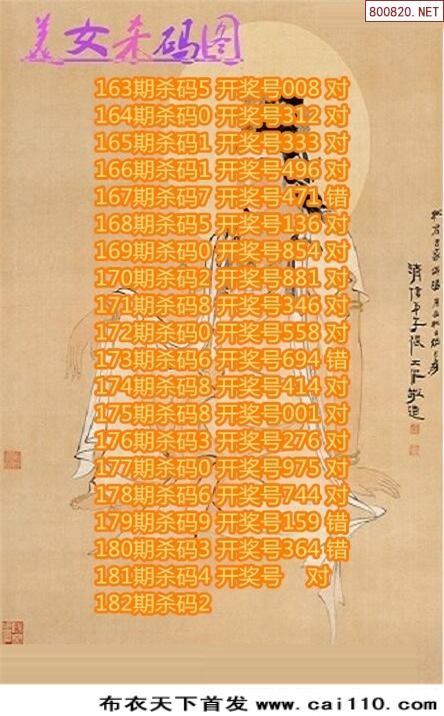 800820.NET
美女杀码图
163期杀码5 开奖号008 对
164期杀码0 开奖号312 对
165期杀码1 开奖号333 对
166期杀码1 开奖号496 对
167期杀码7 开奖号471 错
168期杀码5 开奖号136 对
169期杀码0 开奖号854 对
170期杀码2 开奖号881 对
171期杀码8 开奖号346 对
172期杀码0 开奖号558 对
173期杀码6 开奖号694 错
174期杀码8 开奖号414 对
175期杀码8 开奖号001 对
176期杀码3 开奖号276 对
177期杀码0 开奖号975 对
178期杀码6 开奖号744 对
179期杀码9 开奖号159 错
180期杀码3 开奖号364 错
181期杀码4 开奖号 对
182期杀码2
布衣天下首发 www.cai110.com